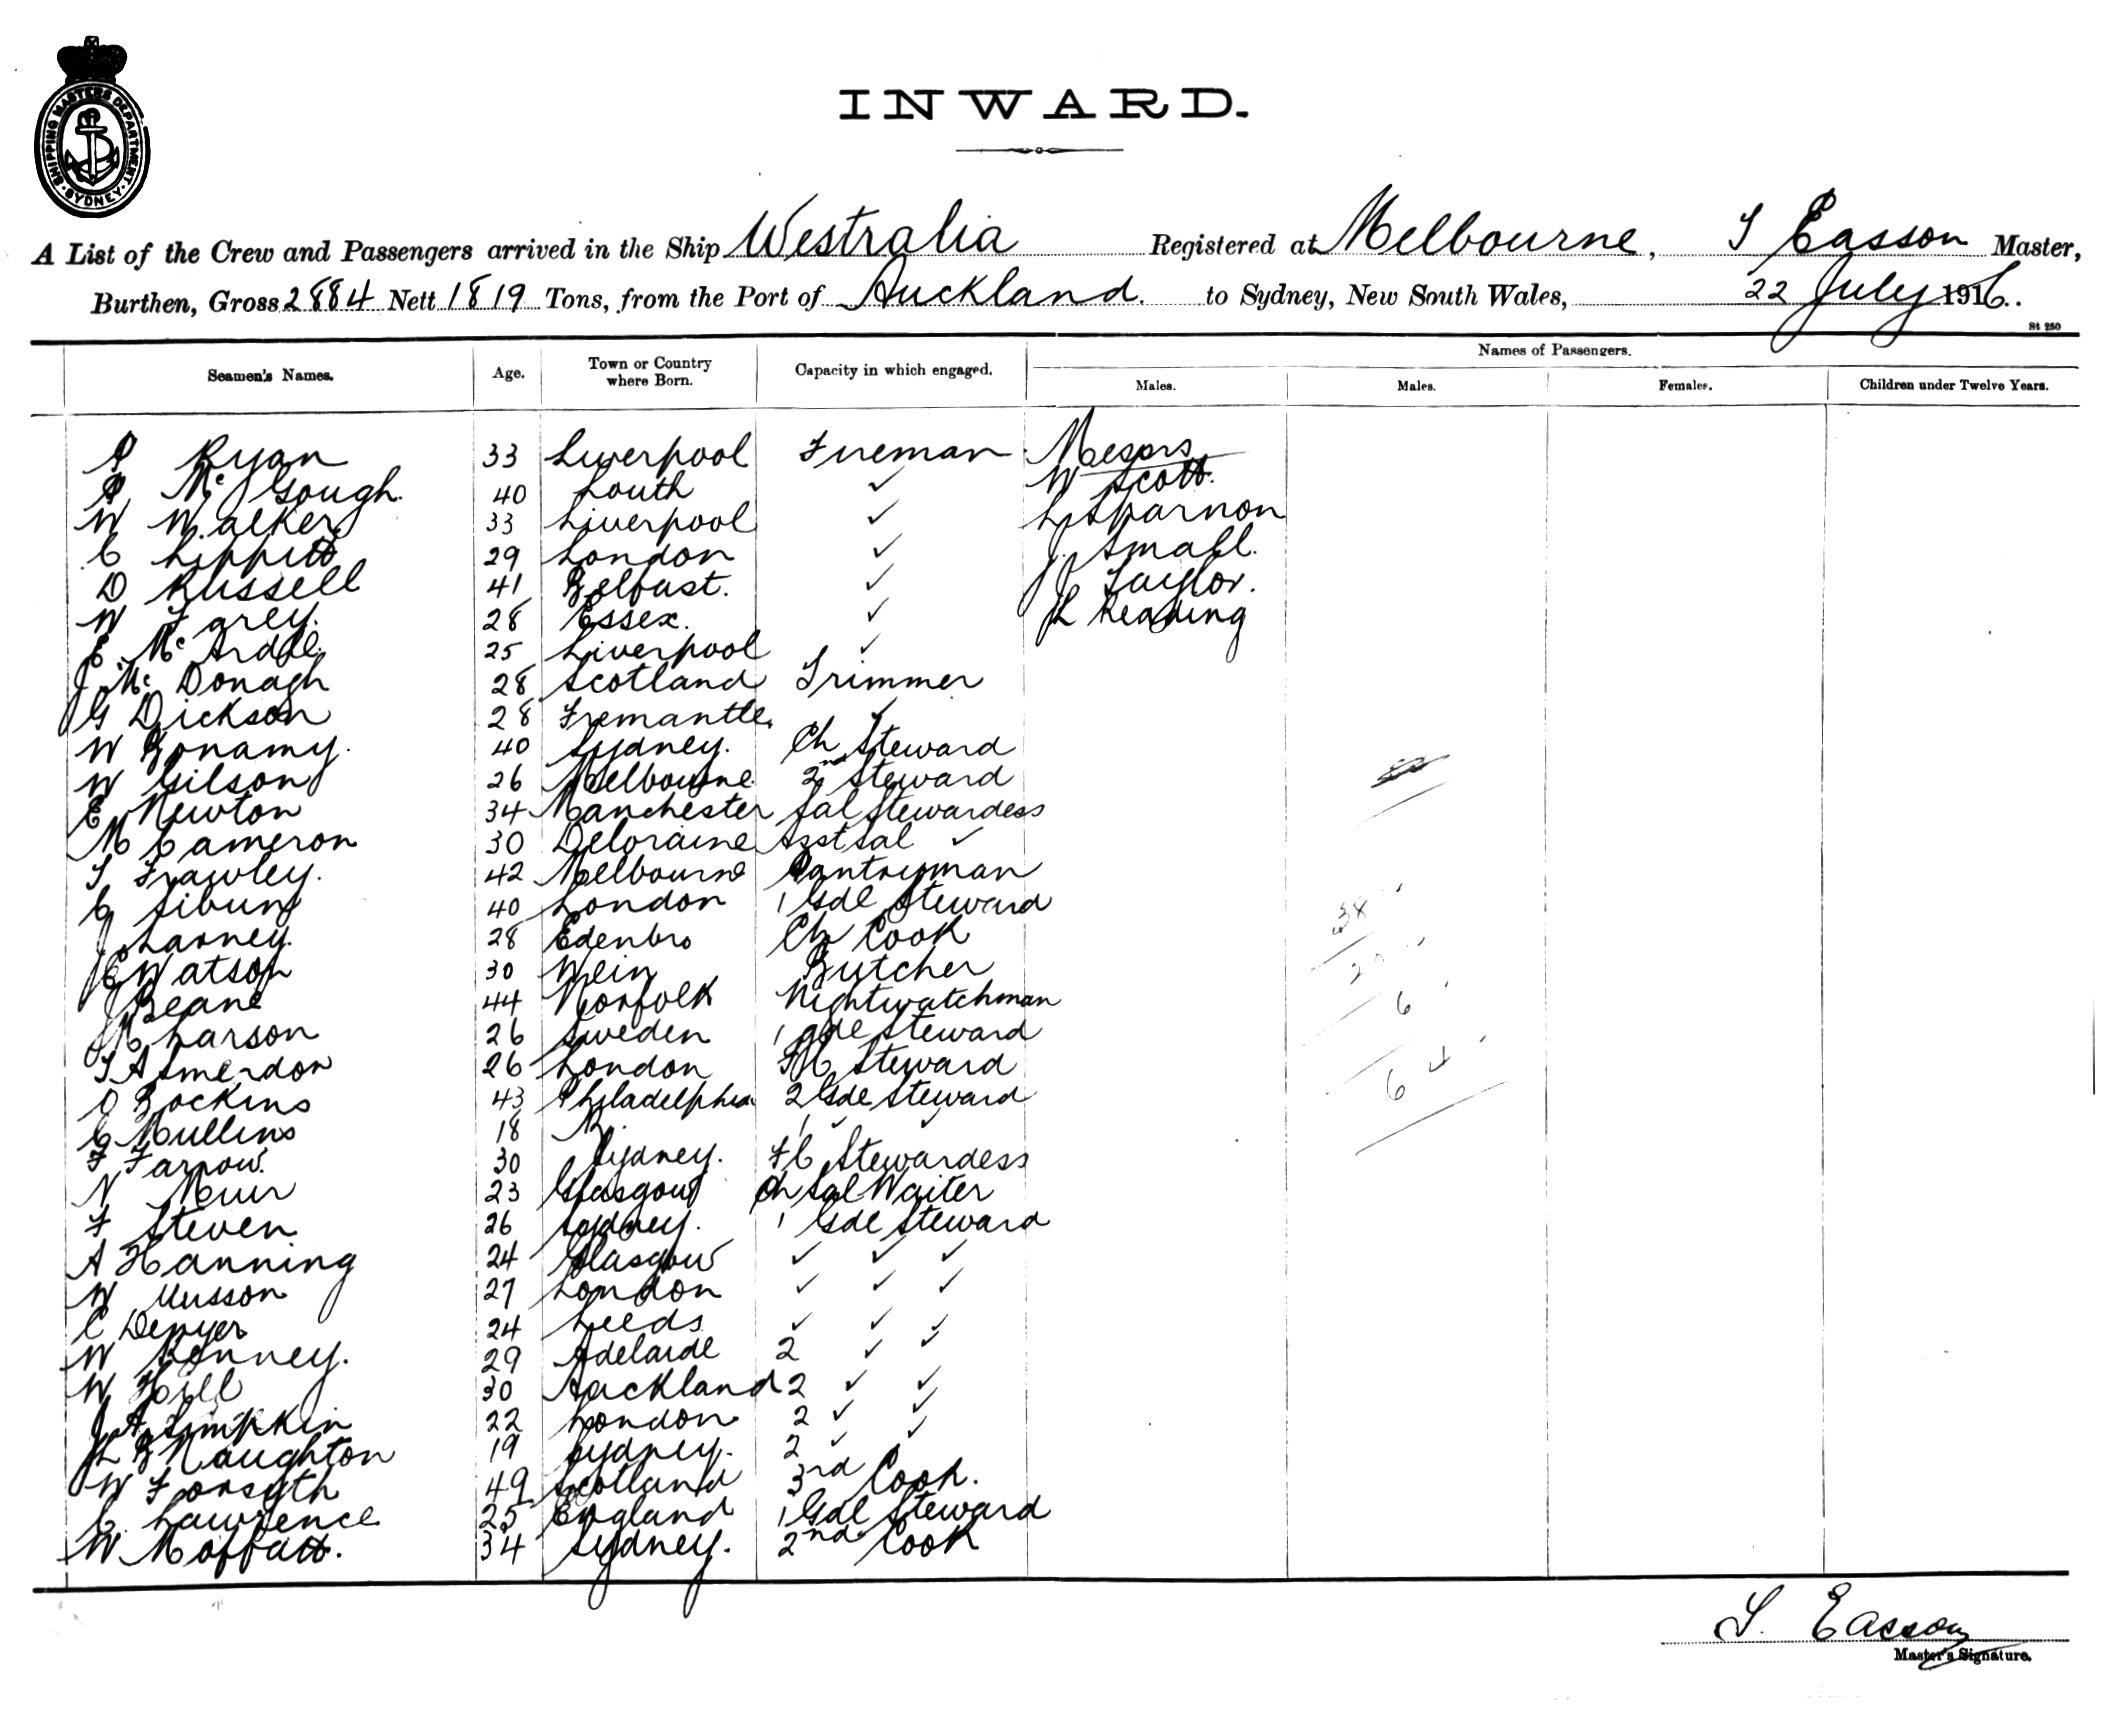 SHIPPING MASTERS DEPARTMENT. SYDNEY
INWARD.
A List of the Crew and Passengers arrived in the Ship Westralia Registered at Melbourne, Easson Master,
Burthen, Gross 2884 Nett 1819 Tons, from the Port of Auckland. to Sydney, New South Wales, 22 July 1916.
St 250
Seamen's Names. Age. Town or Country where Born. Capacity in which engaged. Names of Passengers.
Males. Males. Females. Children under Twelve Years.
P Ryan 33 Liverpool Fireman Messrs
P McGough. 40 Louth ✓ W Scott.
W Walker 33 Liverpool ✓ L Sparnon
C Lippitt 29 London ✓ J. Small.
D Russell 41 Belfast. ✓ J Taylor.
W Farey. 28 Essex. ✓ Reading
E. McArdle. 25 Liverpool ✓
J McDonagh 28 Scotland Trimmer
G Dickson 28 Fremantle. ✓
W Bonamy. 40 Sydney. Ch Steward
W Gilson 26 Melbourne 2nd Steward
E Newton 34 Manchester Sal Stewardess
M Cameron 30 Deloraine Asst Sal ✓
T Frawley. 42 Melbourne Pantryman
C Sibun 40 London 1 Gde Steward
J Larney. 28 Edenbro Ch Cook
E Watson 30 Wein Butcher
J Beane 44 Norfolk Nightwatchman
Larson 26 Sweden 1 gde Steward
T A Smerdon 26 London FC Steward
O Bockins 43 Philadelphia 2 Gde Steward
C Mullins 18 ✓ ✓
F Farrow. 30 Sydney. FC Stewardess
N Muir 23 Glasgow Ch Sal Waiter
F Steven 26 Sydney. 1 Gde Steward
A Hanning 24 Glasgow ✓ ✓ ✓
W Musson 27 London ✓ ✓ ✓
C Denyer 24 Leeds ✓ ✓ ✓
W Kenney. 29 Adelaide 2 ✓ ✓
W Hill 30 Auckland 2 ✓ ✓
J A Simpkin 22 London 2 ✓ ✓
B Naughton 19 Sydney. 2 ✓ ✓
W Forsyth 49 Scotland 3rd Cook.
C Lawrence 25 England 1 Gde Steward
W Moffatt. 34 Sydney. 2nd Cook
38
6
Easson
Master's Signature.